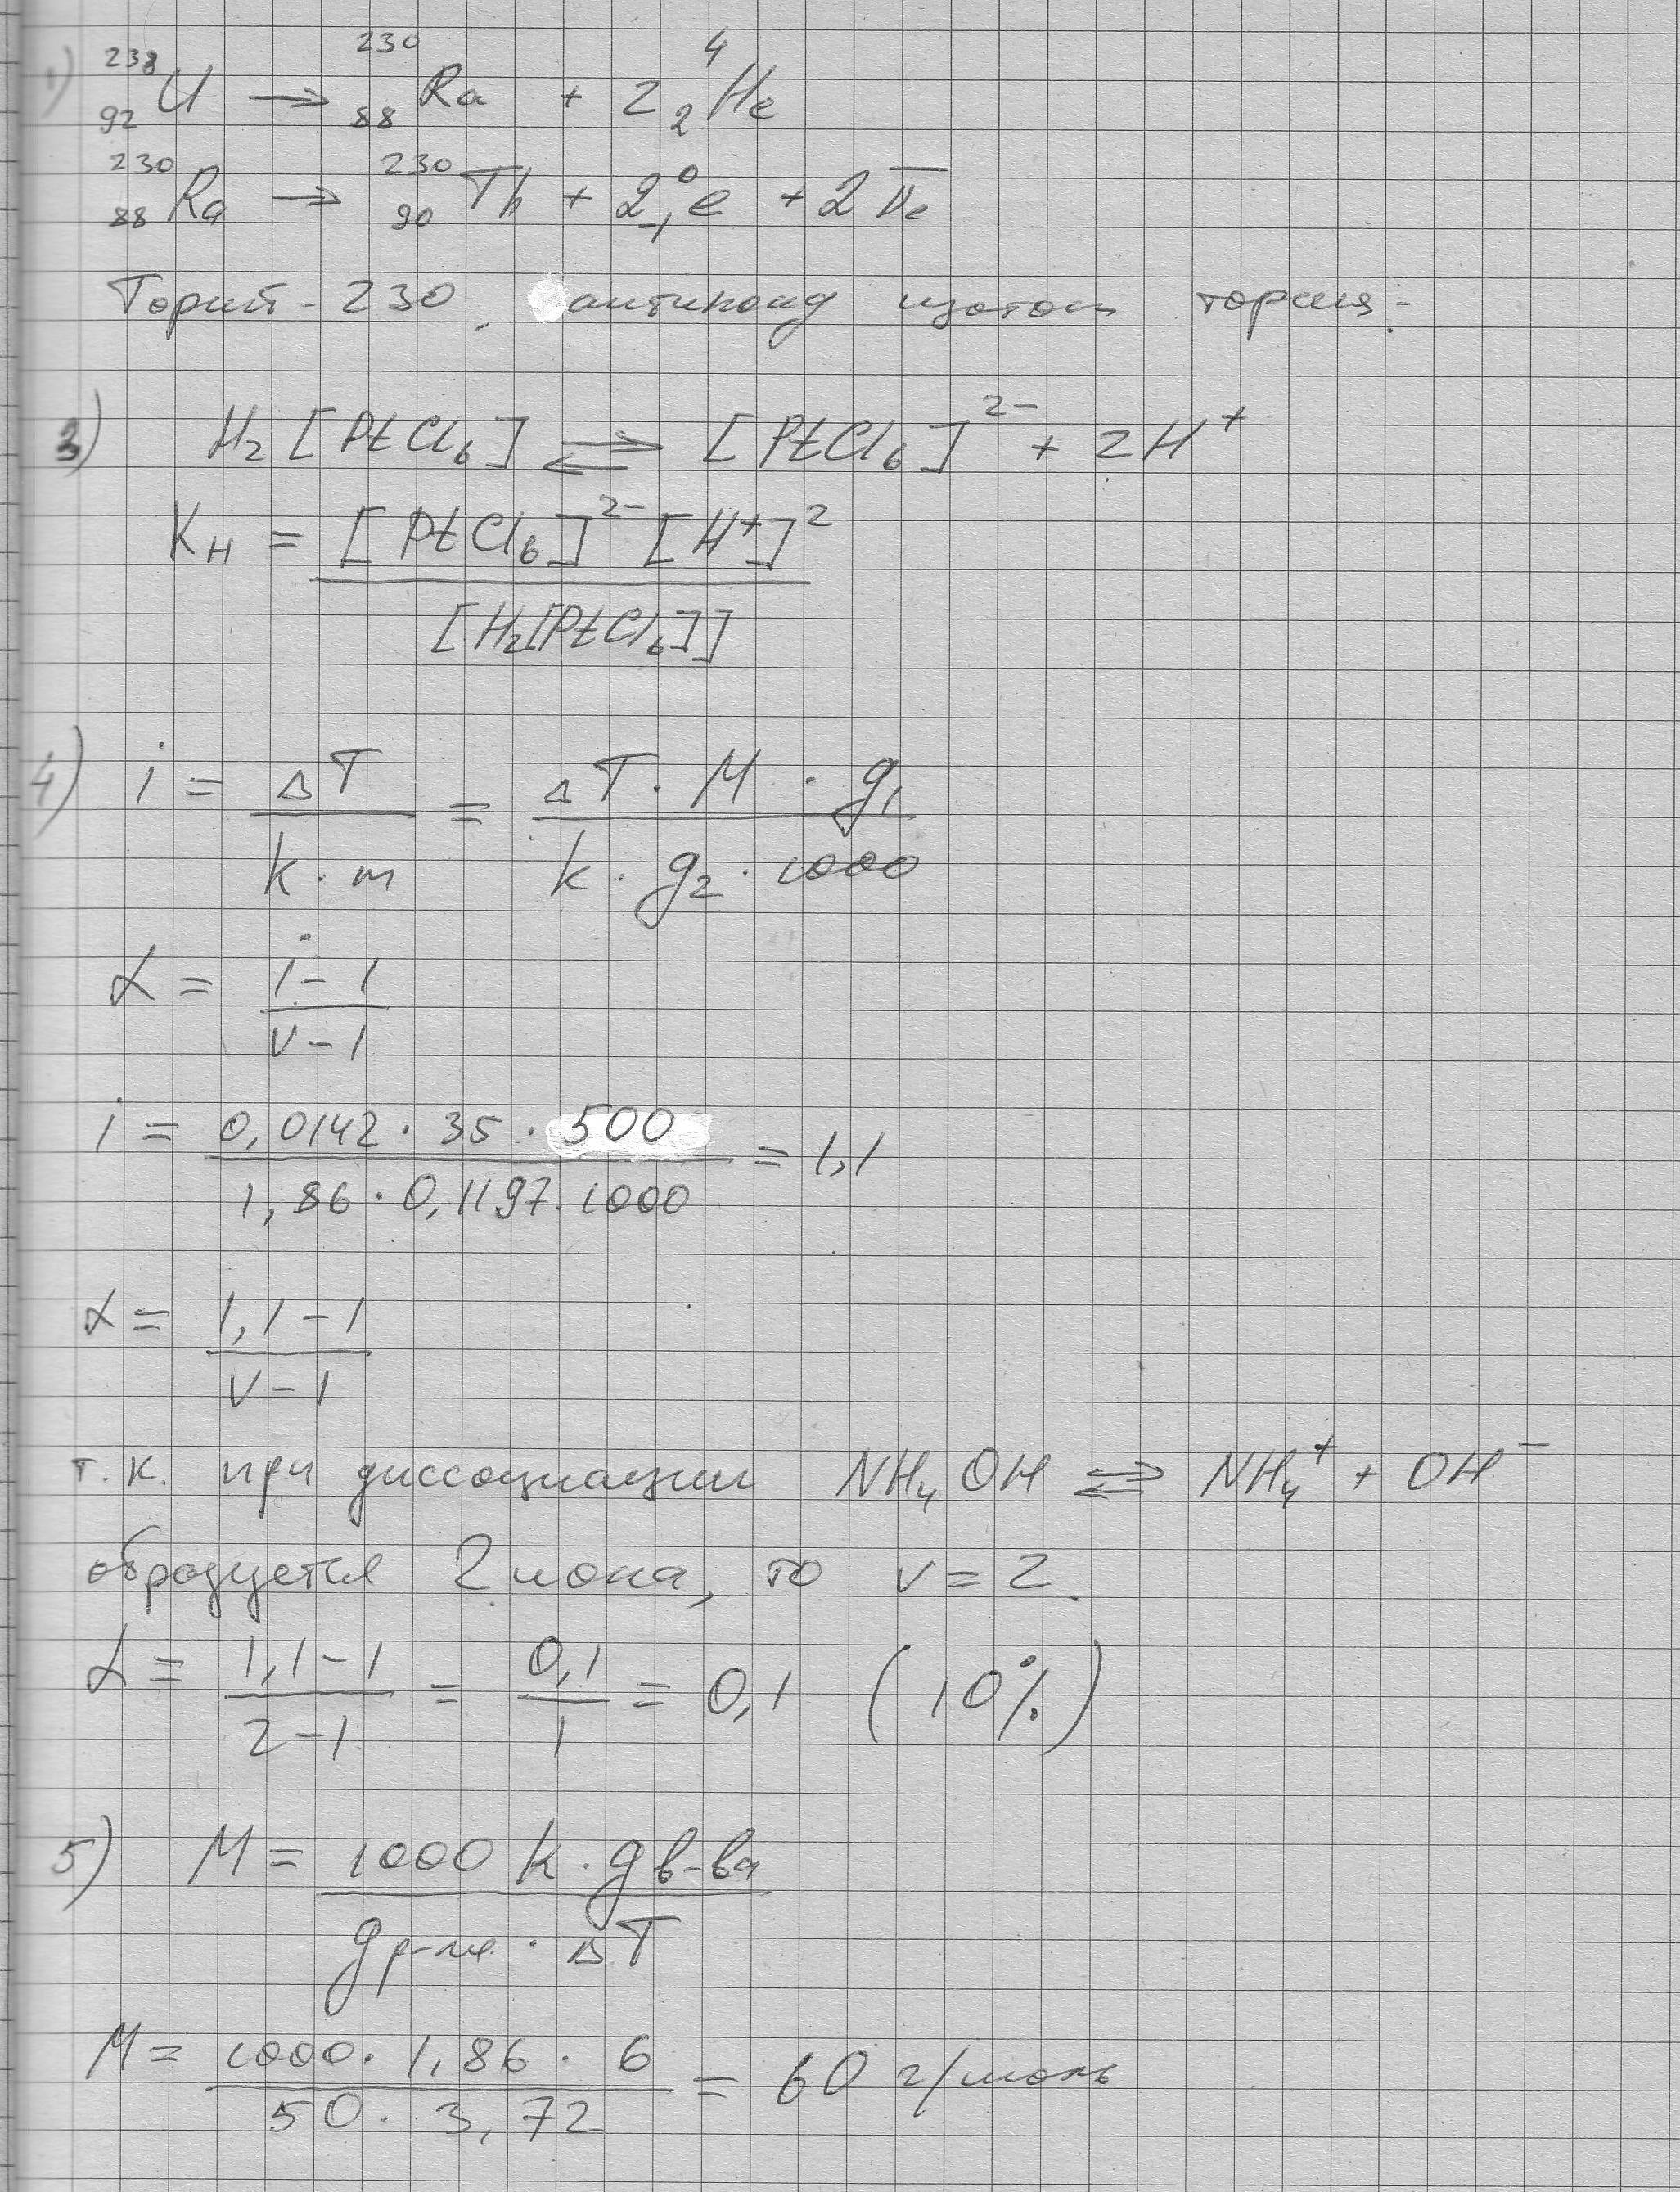 1) ²³⁸₉₂U → ²³⁰₈₈Ra + 2 ⁴₂He
²³⁰₈₈Ra → ²³⁰₉₀Th + 2 ⁰₋₁e + 2ν̅ₑ
Торий-230, изотоп тория.
3) H₂[PtCl₆] ⇄ [PtCl₆]²⁻ + 2H⁺
Kн = [PtCl₆]²⁻ [H⁺]² / [H₂[PtCl₆]]
4) i = ΔT / k · m = ΔT · M · g₁ / k · g₂ · 1000
α = i - 1 / ν - 1
i = 0,0142 · 35 · 500 / 1,86 · 0,1197 · 1000 = 1,1
α = 1,1 - 1 / ν - 1
т.к. при диссоциации NH₄OH ⇄ NH₄⁺ + OH⁻
образуется 2 иона, то ν = 2.
α = 1,1 - 1 / 2 - 1 = 0,1 / 1 = 0,1 (10%)
5) M = 1000 k · g в-ва / g р-ля · ΔT
M = 1000 · 1,86 · 6 / 50 · 3,72 = 60 г/моль